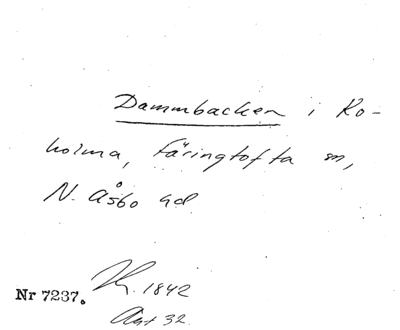 Dammbacken i Ko-
holma, Färingtofta sn,
N. Åsbo hd
Nr 7237. 1842
Avt 32